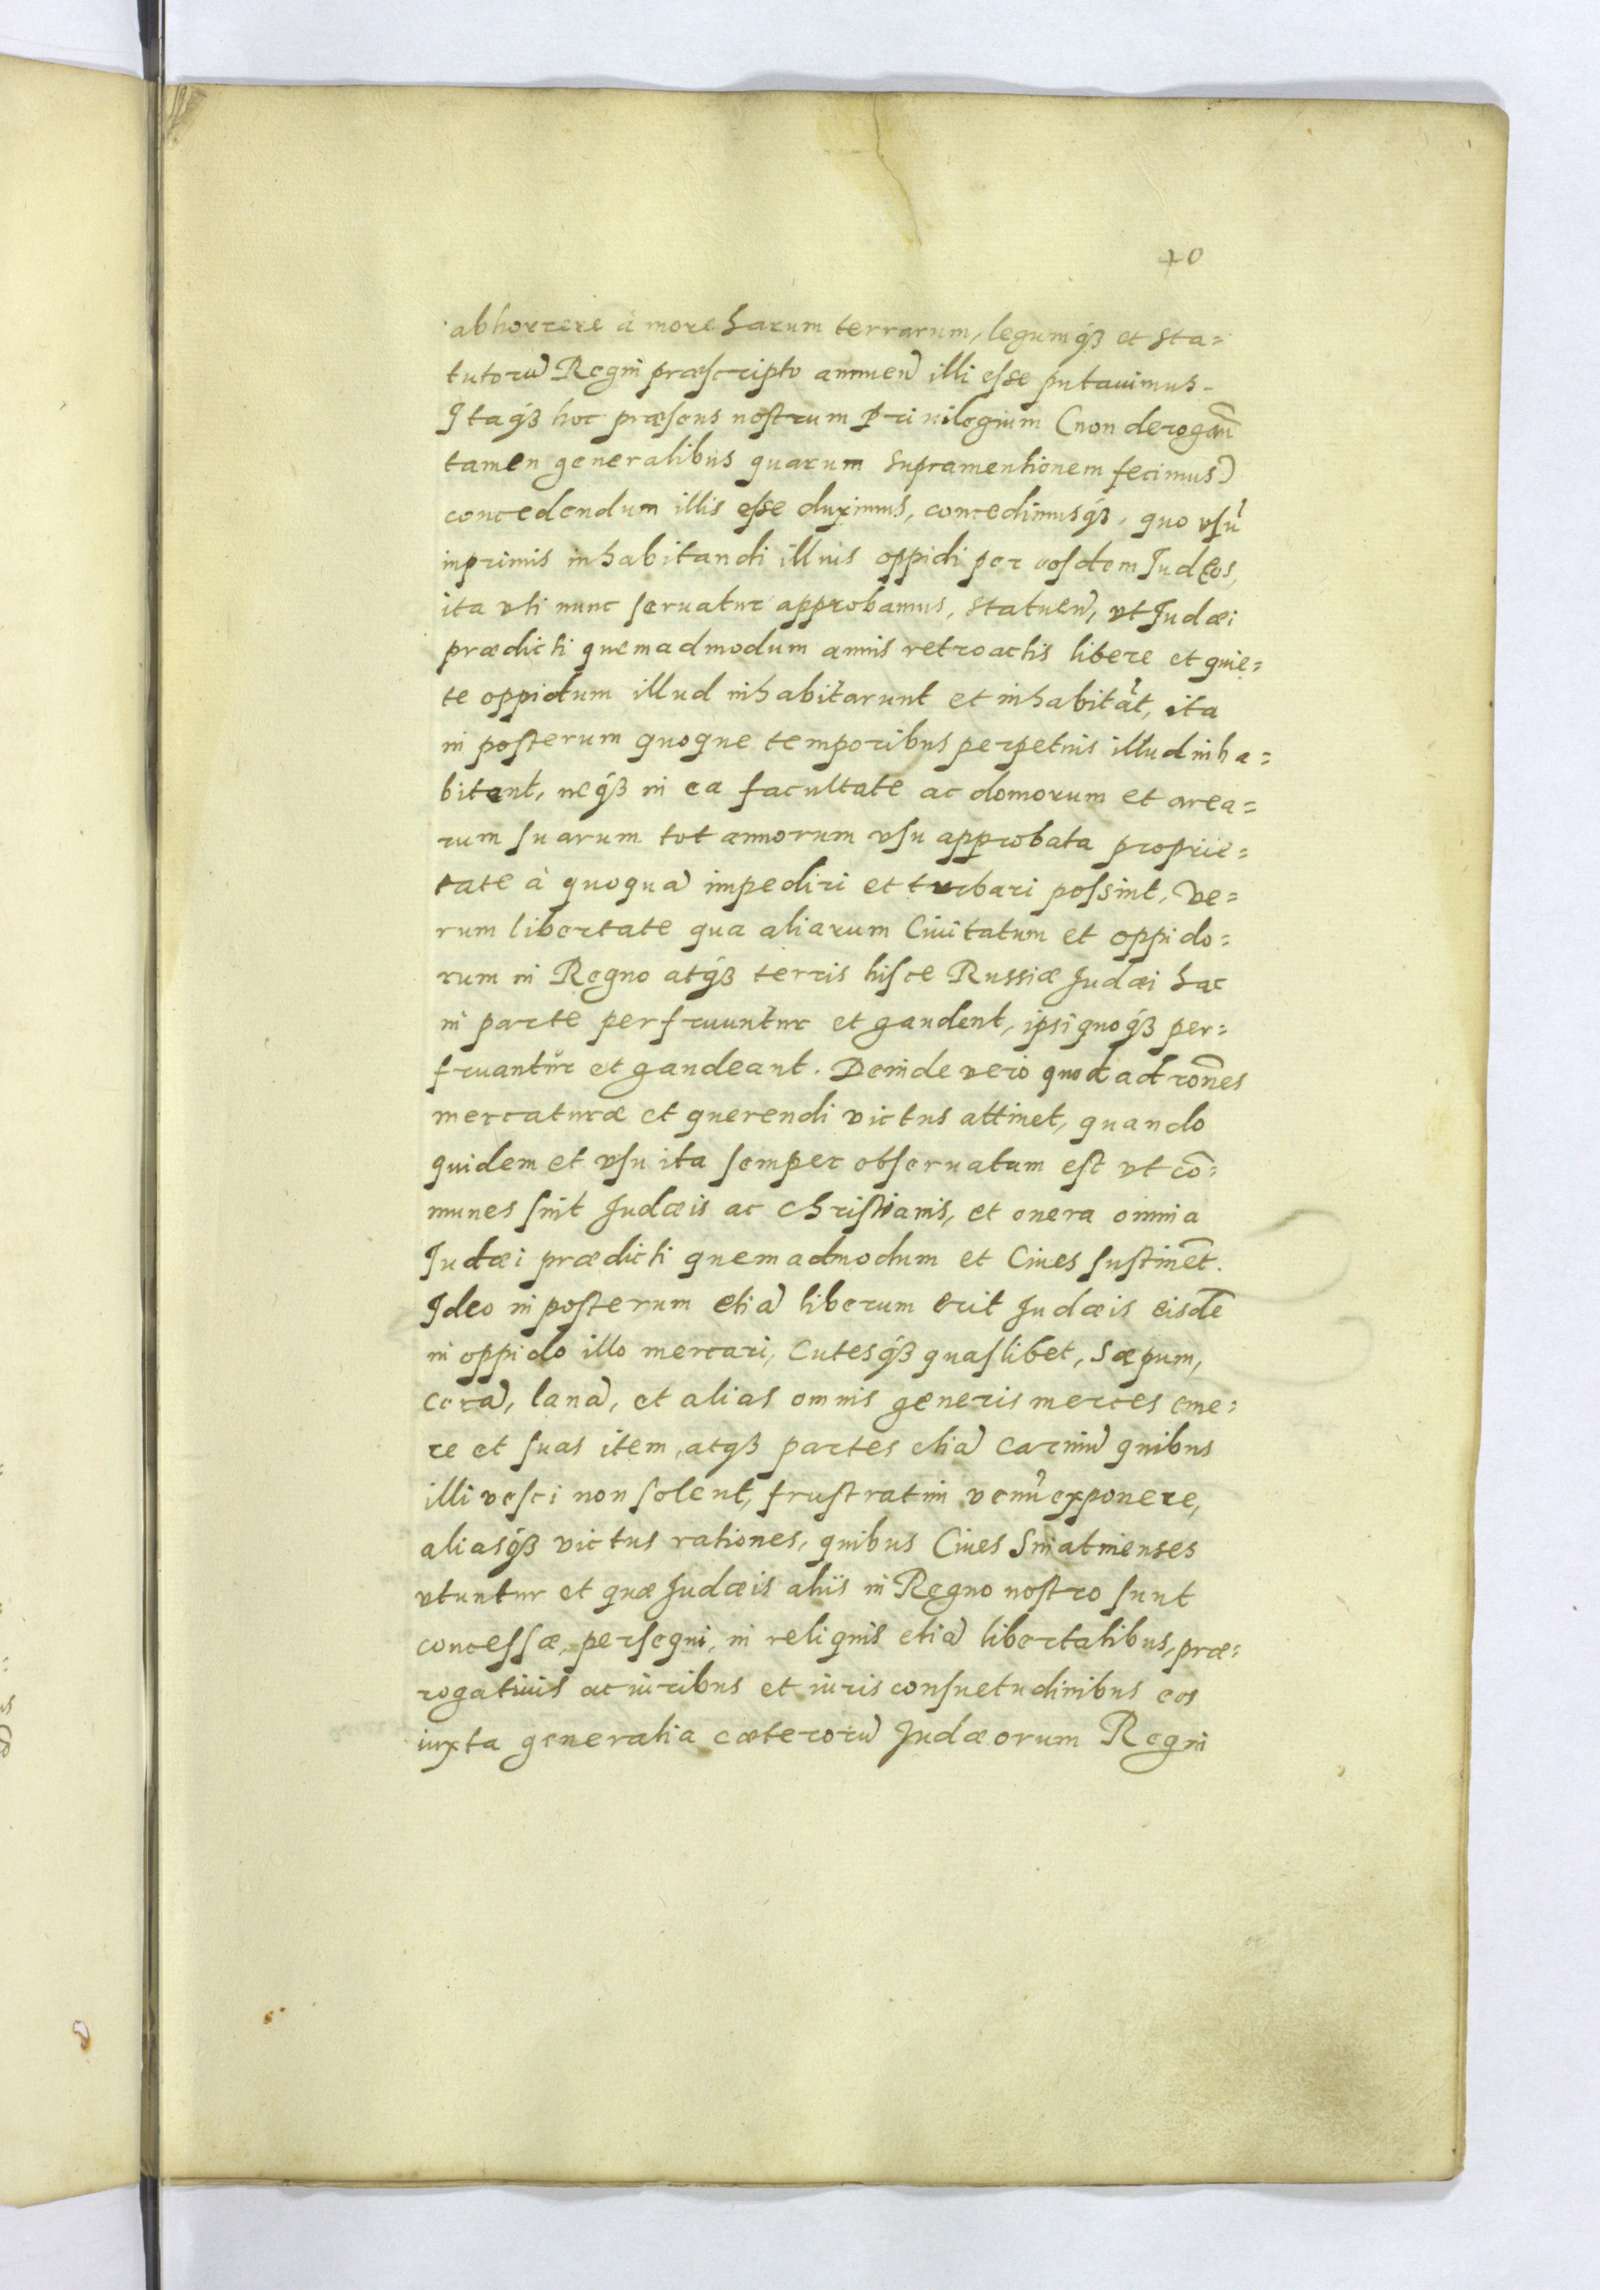 40
abhorrere à more harum terrarum, legumq́ꝫ et sta=
tutorũ Regni præscripto annuen̄ illi esse putauimus.
Itaq́ꝫ hoc præsens nostrum Priuilegium (non derogan̄
tamen generalibus quarum supra mentionem fecimus)
concedendum illis esse duximus, concedimusq́ꝫ, quo usũ
inprimis inhabitandi illius oppidi per eosdem Judęos,
ita uti nunc seruatur approbamus, statuen̄, ut Judæi
prædicti quemadmodum annis retroactis libere et quie=
te oppidum illud inhabitarunt et inhabitãt, ita
in posterum quoque temporibus perpetuis illud inha=
bitent, neq́ꝫ in ea facultate ac domorum et area=
rum suarum tot annorum usu approbata proprie=
tate à quoquã impediri et turbari possint, ve=
rum libertate qua aliarum Ciuitatum et oppido=
rum in Regno atq́ꝫ terris hisce Russiæ Judæi hac
in parte perfruuntur et gaudent, ipsi quoq́ꝫ per=
fruantur et gaudeant. Deinde vero quod ad rōnes
mercaturæ et querendi victus attinet, quando
quidem et usu ita semper obseruatum est ut cō=
munes sint Judæis ac Christianis, et onera omnia
Judæi prædicti quemadmodum et Ciues sustinēt.
Ideo in posterum etiã liberum erit Judæis eisdē
in oppido illo mercari, Cutesq́ꝫ quaslibet, Sæpum,
cerã, lanã, et alias omnis generis merces eme=
re et suas item, atqꝫ partes etiã carniũ quibus
illi vesci non solent, frustratim venũ exponere,
aliasq́ꝫ victus rationes, quibus Ciues Sniatinenses
utuntur et quæ Judæis aliis in Regno nostro sunt
concessæ, persequi, in reliquis etiã libertatibus, præ=
rogatiuis ac iuribus et iuris consuetudinibus eos
iuxta generalia cæterorũ Judæorum Regni